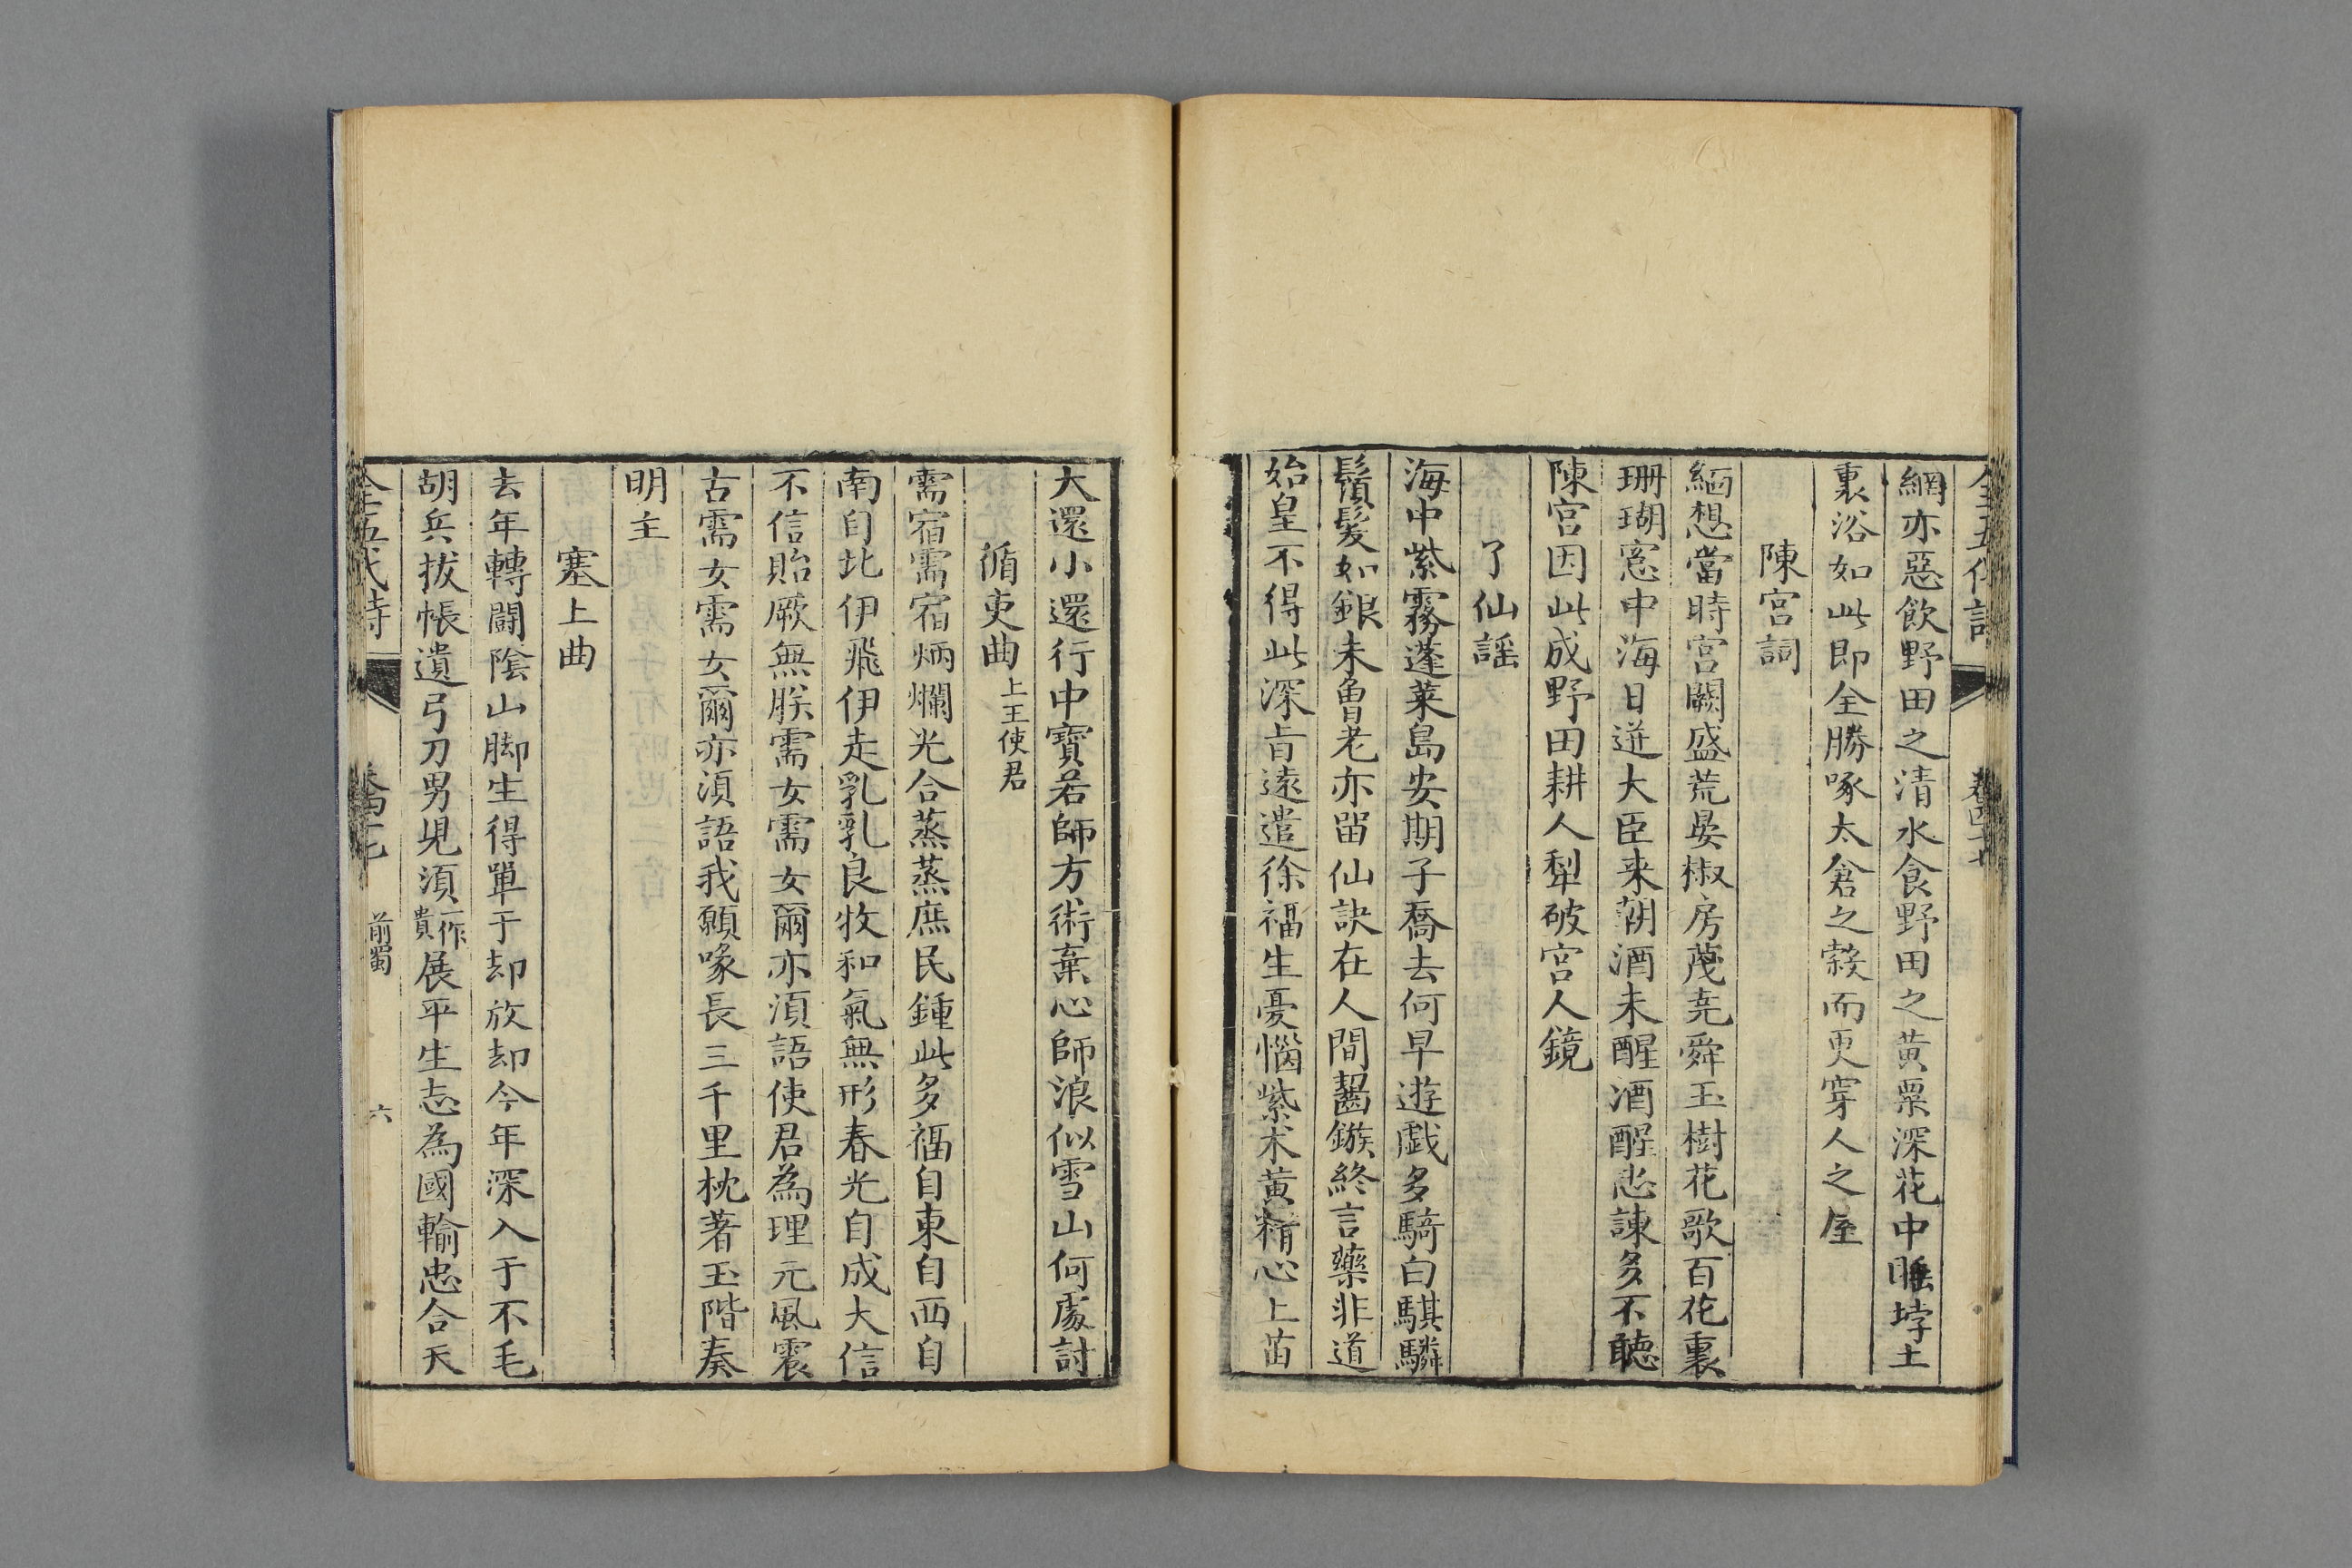 網亦惡飲野田之清水食野田之黃粟深花中睡垺土
裏浴如此即全勝啄太倉之穀而更穿人之屋
陳宮詞
緬想當時宮闕盛荒晏椒房蔑堯舜玉樹花歌百花裏
珊瑚窻中海日迸大臣来朝酒未醒酒醒忠諫多不聽
陳宮因此成野田耕人犁破宮人鏡
了仙謡
海中紫霧蓬萊島安期子喬去何早遊戯多騎白騏驎
鬚髮如銀未曾老亦留仙訣在人間齧鏃終言藥非道
始皇不得此深旨遠遣徐福生憂惱紫术黃精心上苗
大還小還行中寶若師方術棄心師浪似雪山何處討
循吏曲上王使君
需宿需宿炳爛光合蒸蒸庶民鍾此多福自東自西自
南自北伊飛伊走乳乳良牧和氣無形春光自成大信
不信貽厥無朕需女需女爾亦湏語使君為理元風震
古需女需女爾亦湏語我願喙長三千里枕著玉階奏
明主
塞上曲
去年轉鬬陰山脚生得單于却放却今年深入于不毛
胡兵拔帳遺弓刀男兒湏一作貴展平生志為國輸忠合天
全五代詩 前蜀 六